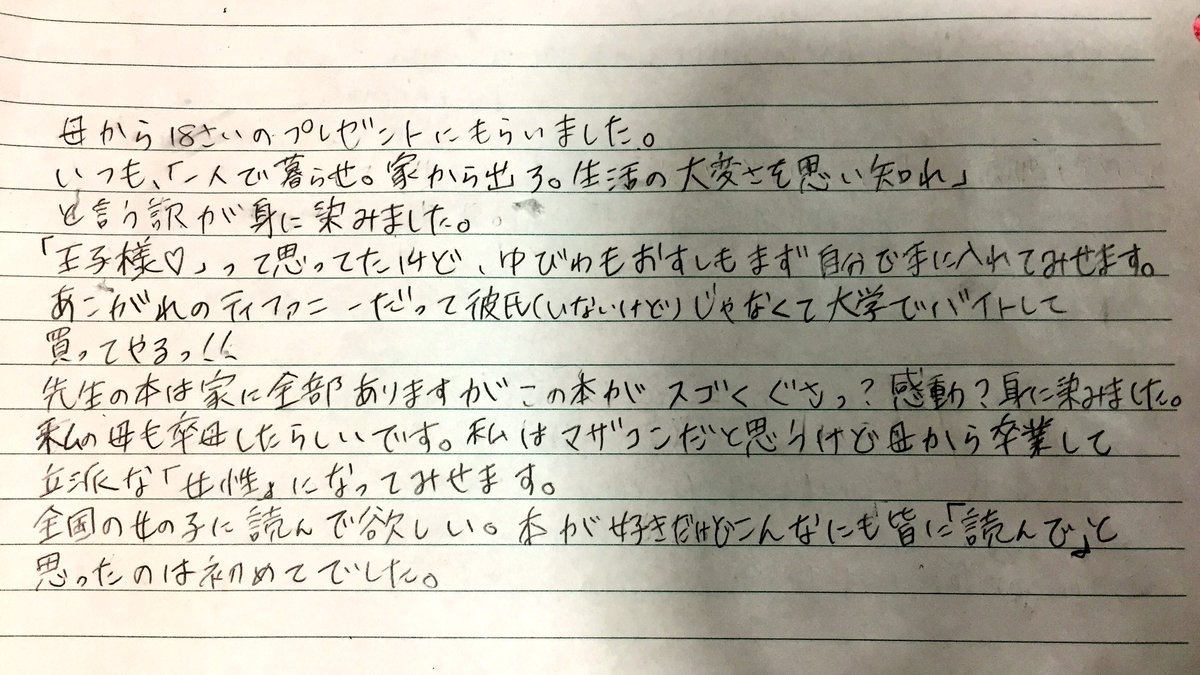 母から18さいのプレゼントにもらいました。
いつも、「一人で暮らせ。家から出ろ。生活の大変さを思い知れ」
と言う訳が身に染みました。
「王子様♡」って思ってたけど、ゆびわもおすしもまず自分で手に入れてみせます。
あこがれのティファニーだって彼氏(いないけど)じゃなくて大学でバイトして
買ってやるっ!!
先生の本は家に全部ありますがこの本がスゴくぐさっ?感動?身に染みました。
私の母も卒母したらしいです。私はマザコンだと思うけど母から卒業して
立派な「女性」になってみせます。
全国の女の子に読んで欲しい。本が好きだけどこんなにも皆に「読んで」と
思ったのは初めてでした。